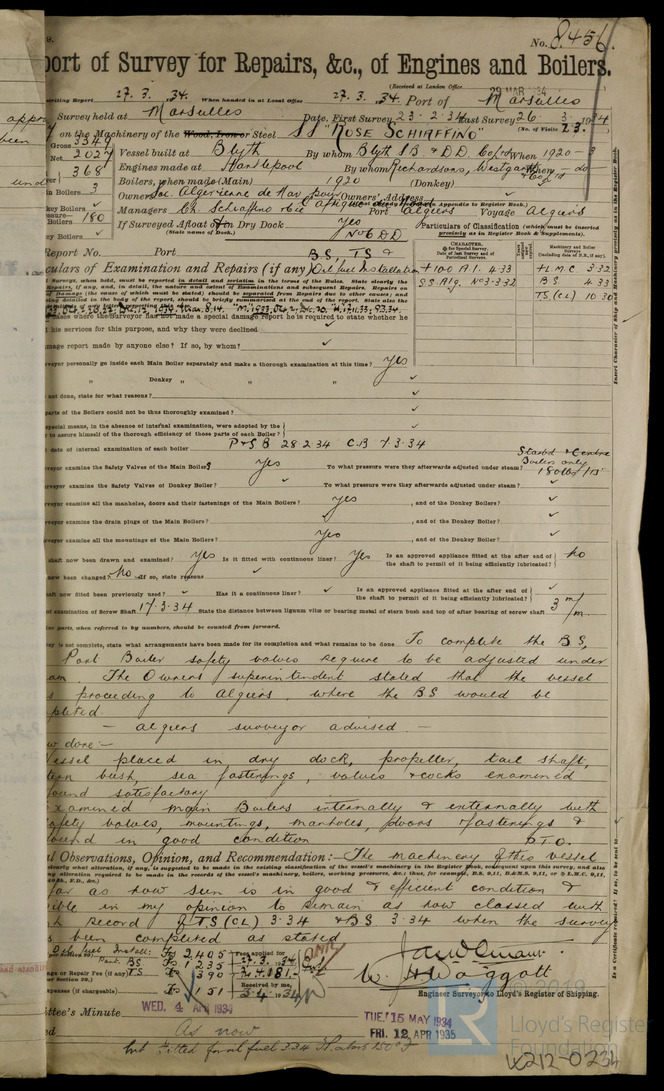 9.
No. 8456.
ort of Survey for Repairs, &c., of Engines and Boilers.
(Received at London Office 29 MAR 1934
writing Report 27. 3. 34. When handed in at Local Office 27. 3. 34. Port of Marseilles
Survey held at Marseilles Date, First Survey 23-2-34 Last Survey 26 3 1934
(No. of Visits 23.
on the Machinery of the Wood, Iron or Steel SS "ROSE SCHIAFFINO"
Gross 3349
Net 2027
368
Vessel built at Blyth By whom Blyth S.B. & D.D. Co Ltd When 1920-3
Engines made at Hartlepool By whom Richardsons, Westgarth & Co Ltd When do
Boilers, when made (Main) 1920 (Donkey)
Boilers 3
Owners Soc. Algerienne de Nav. pour Owners' Address
Managers Ch. Schiaffino & Cie Port Algiers Voyage Algiers
Boilers 180
If Surveyed Afloat or in Dry Dock Yes
(State name of Dock.) No 6 DD
Particulars of Classification (which must be inserted precisely as in Register Book & Supplements).
Report No. Port B.S. TS &
culars of Examination and Repairs (if any) Oil fuel installation
+100 A1. 4.33
S.S. Alg. No3-3.32
+LMC 3.32
BS 4.33
TS(CL) 10.30
this services for this purpose, and why they were declined
mage report made by anyone else? If so, by whom?
veyor personally go inside each Main Boiler separately and make a thorough examination at this time? Yes
" Donkey " " "
not done, state for what reasons?
parts of the Boilers could not be thoroughly examined?
special means, in the absence of internal examination, were adopted by the
to assure himself of the thorough efficiency of those parts of each Boiler?
date of internal examination of each boiler P & S B 28.2.34 C.B 7.3.34
Starbd & Centre Boilers only
veyor examine the Safety Valves of the Main Boilers? Yes To what pressure were they afterwards adjusted under steam? 180 lbs/□"
veyor examine the Safety Valves of Donkey Boiler? To what pressure were they afterwards adjusted under steam?
veyor examine all the manholes, doors and their fastenings of the Main Boilers? Yes, and of the Donkey Boilers?
veyor examine the drain plugs of the Main Boilers?, and of the Donkey Boiler?
veyor examine all the mountings of the Main Boilers? Yes, and of the Donkey Boiler?
shaft now been drawn and examined? Yes Is it fitted with continuous liner? Yes Is an approved appliance fitted at the after end of the shaft to permit of it being efficiently lubricated? No
now been changed? No If so, state reasons
aft now fitted been previously used? Has it a continuous liner? Is an approved appliance fitted at the after end of the shaft to permit of it being efficiently lubricated?
of examination of Screw Shaft 17.3.34 State the distance between lignum vitæ or bearing metal of stern bush and top of after bearing of screw shaft 3 m/m.
ine parts, when referred to by numbers, should be counted from forward.
vey is not complete, state what arrangements have been made for its completion and what remains to be done To complete the BS,
Port Boiler safety valves require to be adjusted under
am. The Owners superintendent stated that the vessel
s proceeding to Algiers where the BS would be
pleted.
— Algiers surveyor advised —
w done:—
essel placed in dry dock, propeller, tail shaft,
ern bush, sea fastenings, valves & cocks examined
found satisfactory
Examined main Boilers internally & externally with
afety valves, mountings, manholes, doors & fastenings &
ound in good condition P.T.O.
l Observations, Opinion, and Recommendation:— The machinery of this vessel
far as now seen is in good & efficient condition &
ible in my opinion to remain as now classed with
h record of TS (CL) 3.34 & BS 3.34 when the survey
s been completed as stated
Oil fuel Install: Fr 2,405
Part. BS Fr 1,235
age or Repair Fee (if any) TS Fr 390
xpenses (if chargeable) Fr 151
Fee applied for
27.3.1934
Received by me,
3.4.1934
W. H. Waggott
Engineer Surveyor to Lloyd's Register of Shipping.
WED. 4 APR 1934
TUE. 15 MAY 1934
FRI. 12 APR 1935
ittee's Minute
As now
but fitted for oil fuel 3.34 F.P. above 150°F
© 2019
Lloyd's Register
Foundation
W212-0234